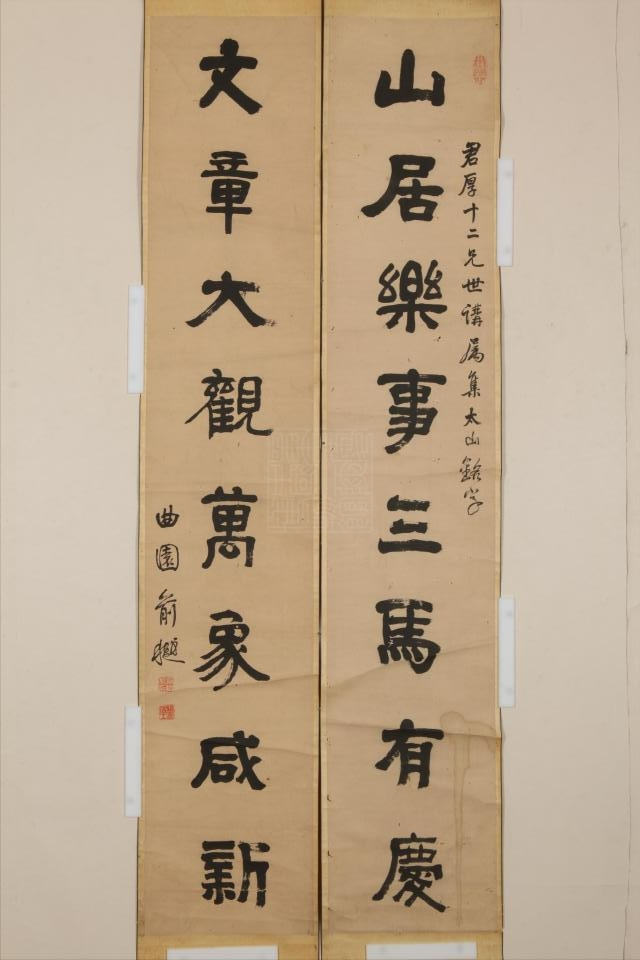 君厚十二兄世講属集太山銘字
山居樂事三馬有慶
文章大觀萬象咸新
曲園俞樾